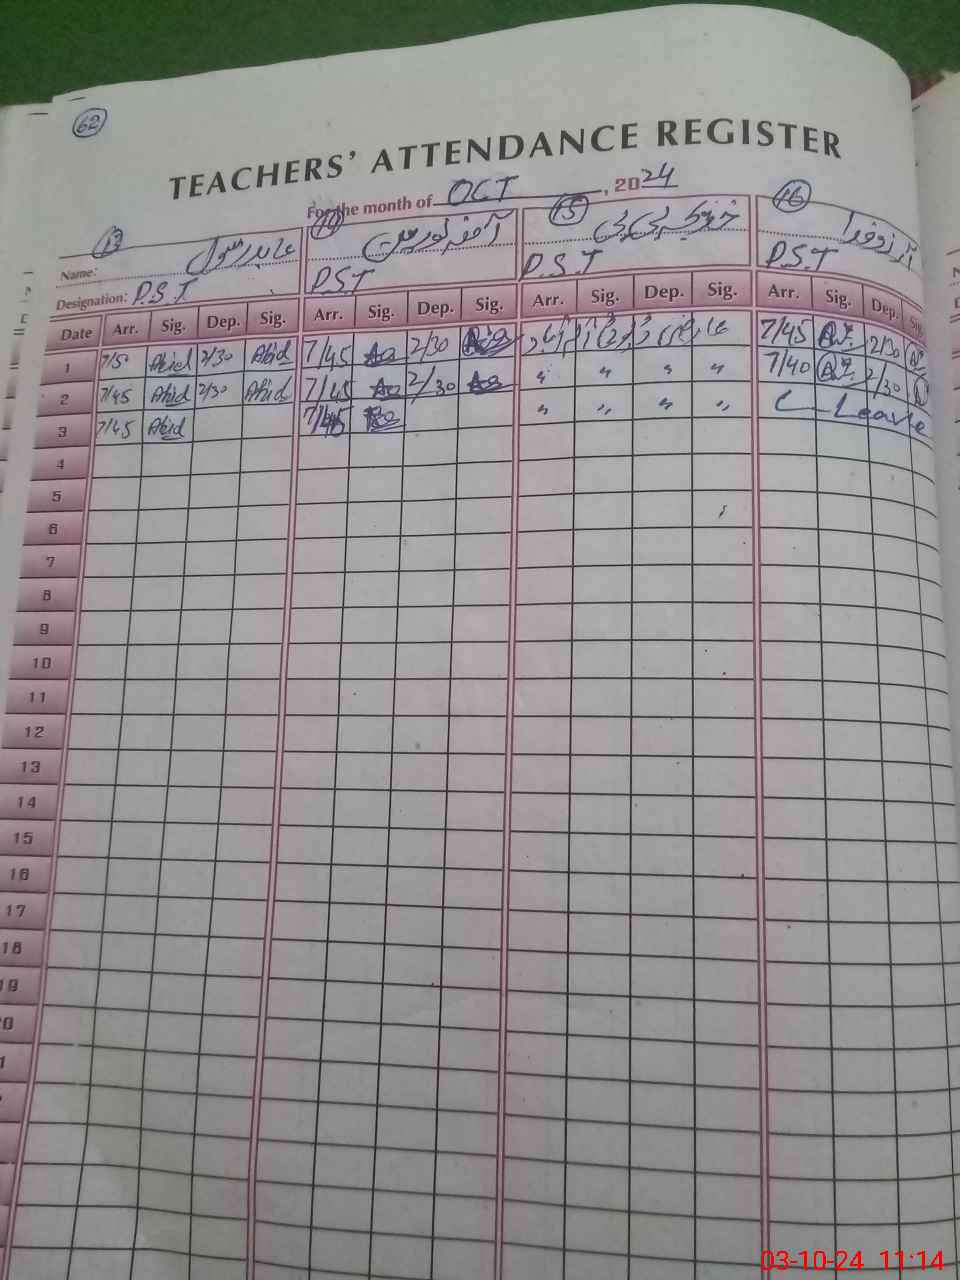 62
TEACHERS' ATTENDANCE REGISTER
For the month of OCT, 2024
13 14 15 16
Name: عابد رسول آمنہ نورین خدیجہ بی بی آرزو فدا
Designation: P.S.T P.S.T P.S.T P.S.T
Date Arr. Sig. Dep. Sig. Arr. Sig. Dep. Sig. Arr. Sig. Dep. Sig. Arr. Sig. Dep. Sig.
1 7/50 Abid 2/30 Abid 7/45 2/30 7/45 2/30
2 7/45 Abid 2/30 Abid 7/45 2/30 " " " " 7/40 2/30
3 7/45 Abid 7/45 " " " " Leave
4
5
6
7
8
9
10
11
12
13
14
15
16
17
18
19
03-10-24 11:14